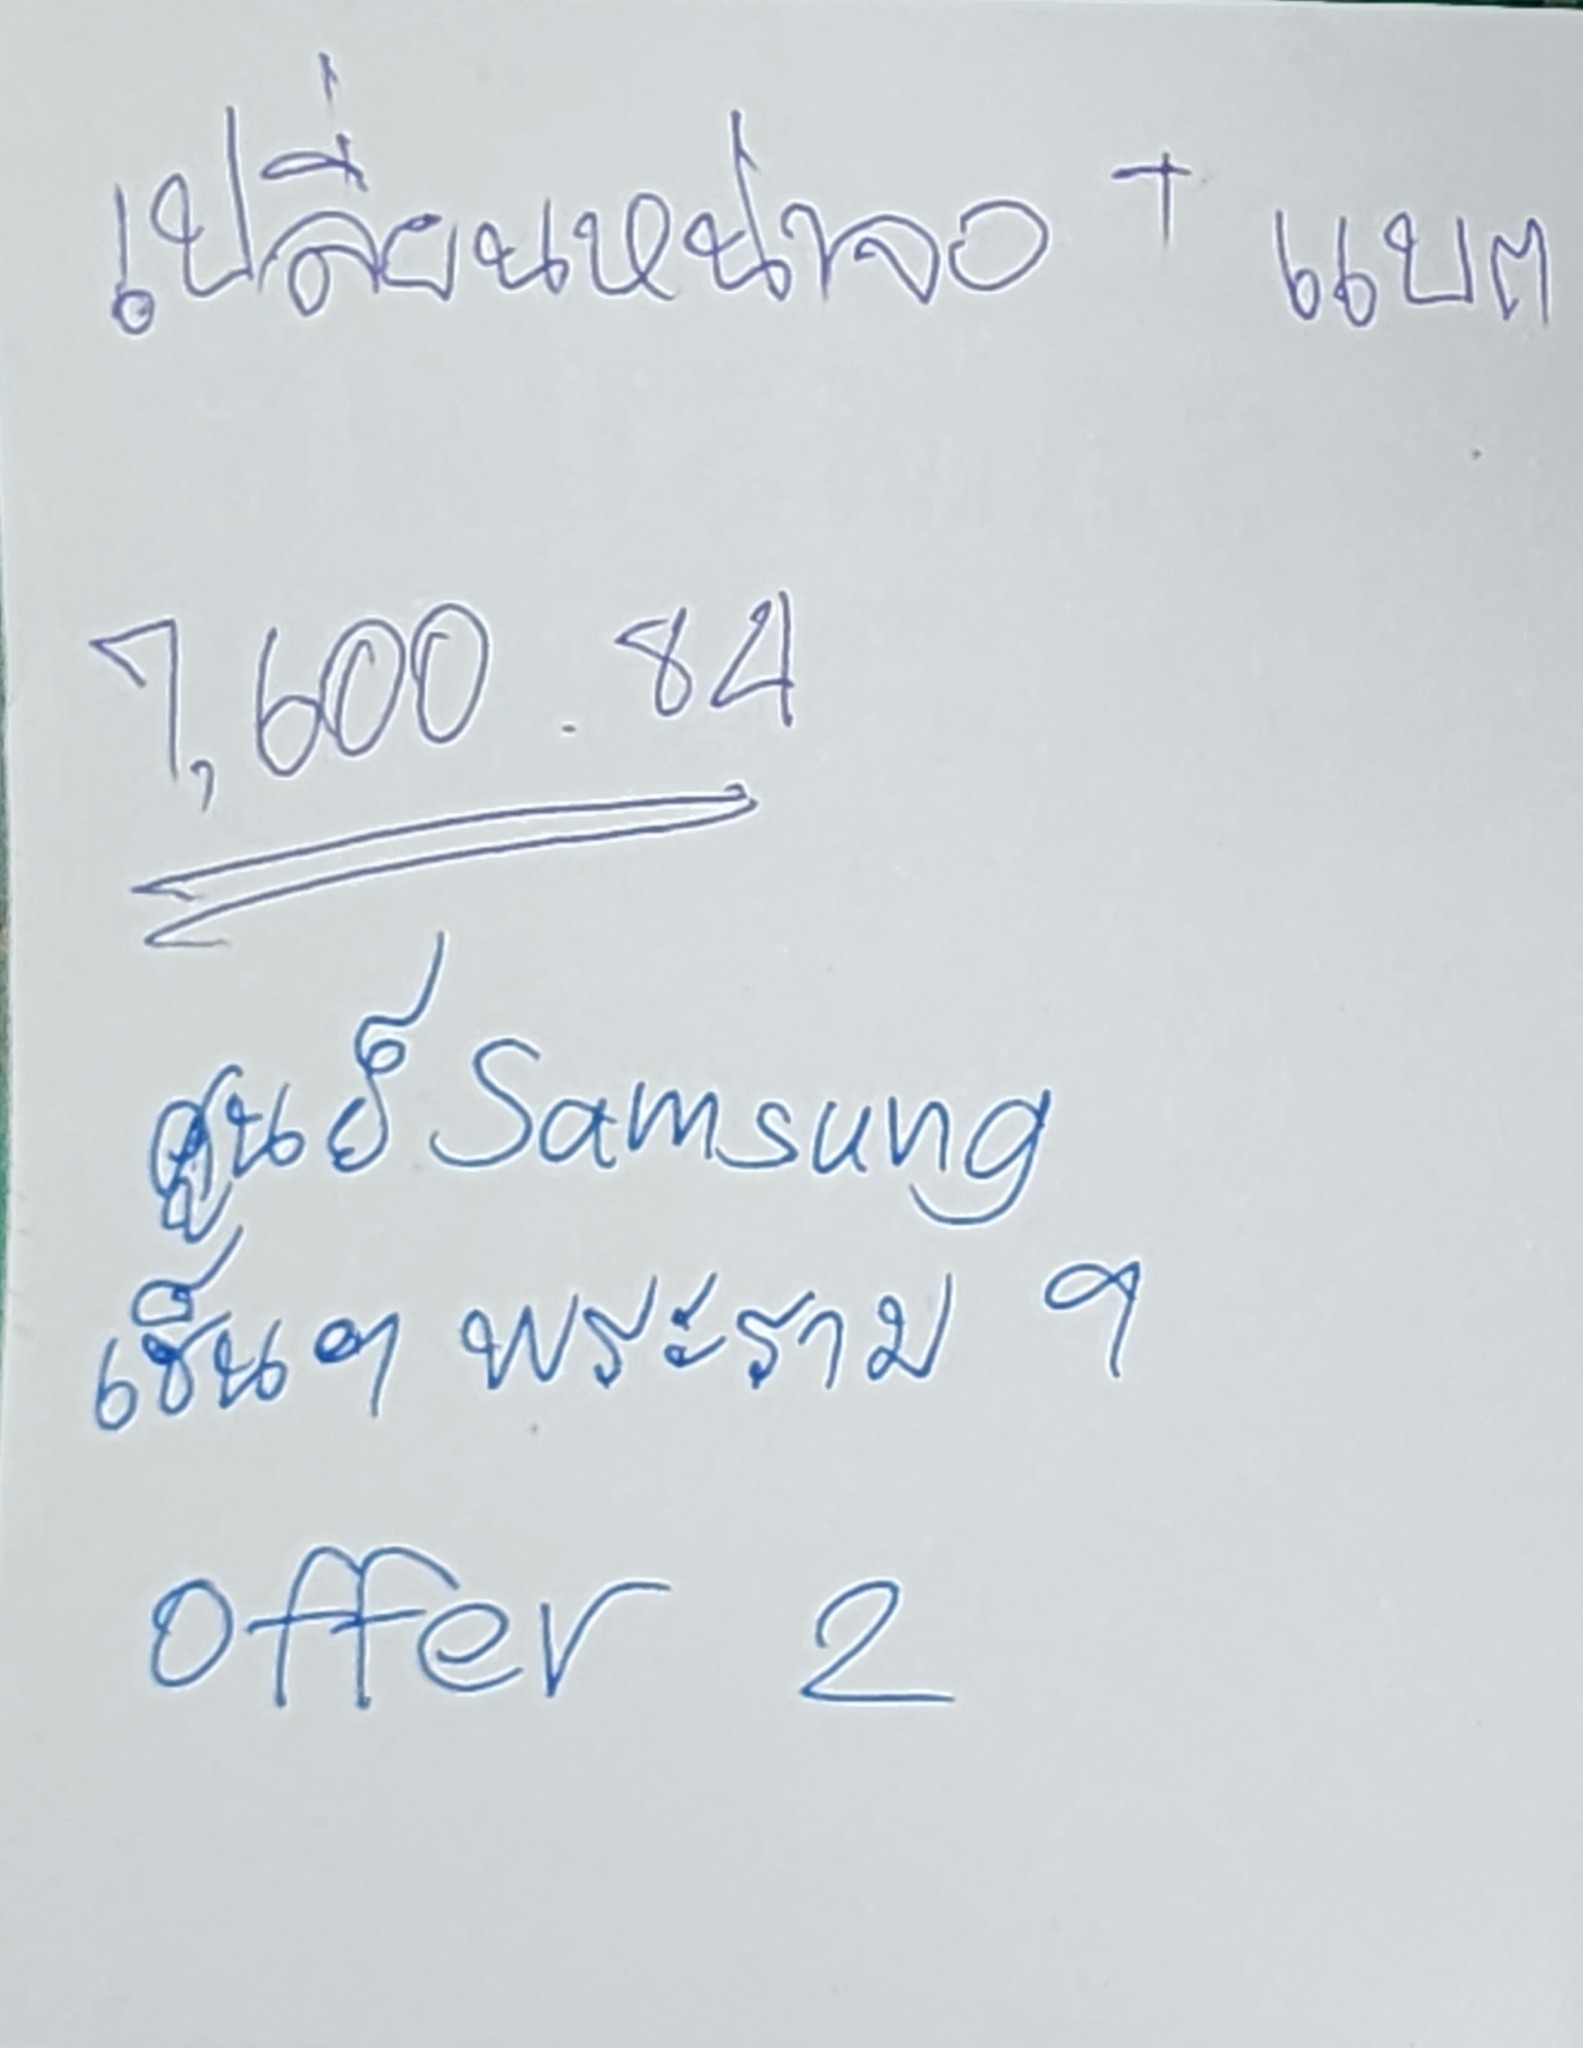 เปลี่ยนหน้าจอ + แบต
7,600.84
ศูนย์ Samsung
เซ็นฯ พระราม 9
offer 2